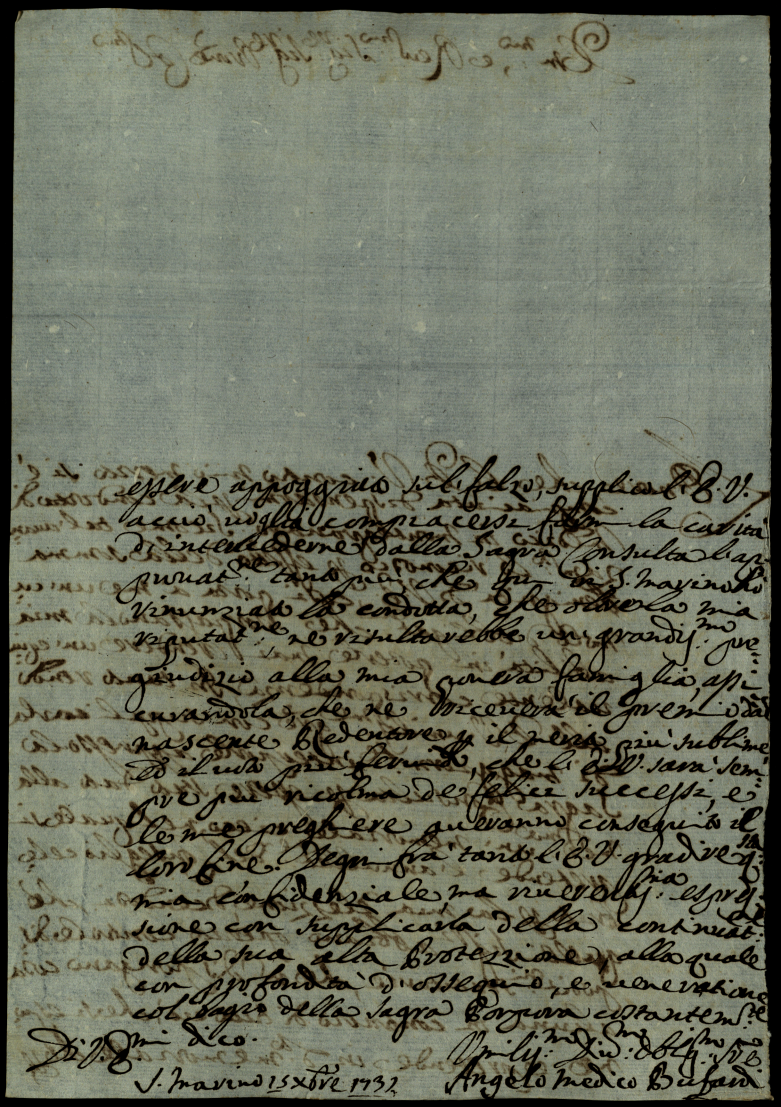 essere appoggiato sul falzo, supplico l'E. V.
acciò voglia compiacersi farmi la carità
d'intercederne dalla Sagra Consulta l'ap
provat.ne tanto più che qui in S. Marino ho
rinunziato la condotta, che oltre la mia
riputat.ne ne risultarebbe un grandiss.mo pre=
giudizio alla mia povera famiglia, assi
curandola, che ne riceverà il premio dal
nascente Redentore p il merito più sublime
ed il più che l'E. V. sarà sem=
pre più ricolma de felici successi, e
le mie preghiere averanno conseguito il
loro fine. Segni frà tanto l'E. V. gradire q.sta
mia confidenziale, ma riverentiss.ma espres
sione con supplicarla della continuat.ne
della sua alta Protezzione, alla quale
con profondità d'ossequio, e veneratione
col bagio della Sagra Porpora costantem.te
mi dico.
Di V. E.
Umiliss.mo Div.mo Obblig.mo Sre
S. Marino 15 Xbre 1732
Angelo Medico Bufardi